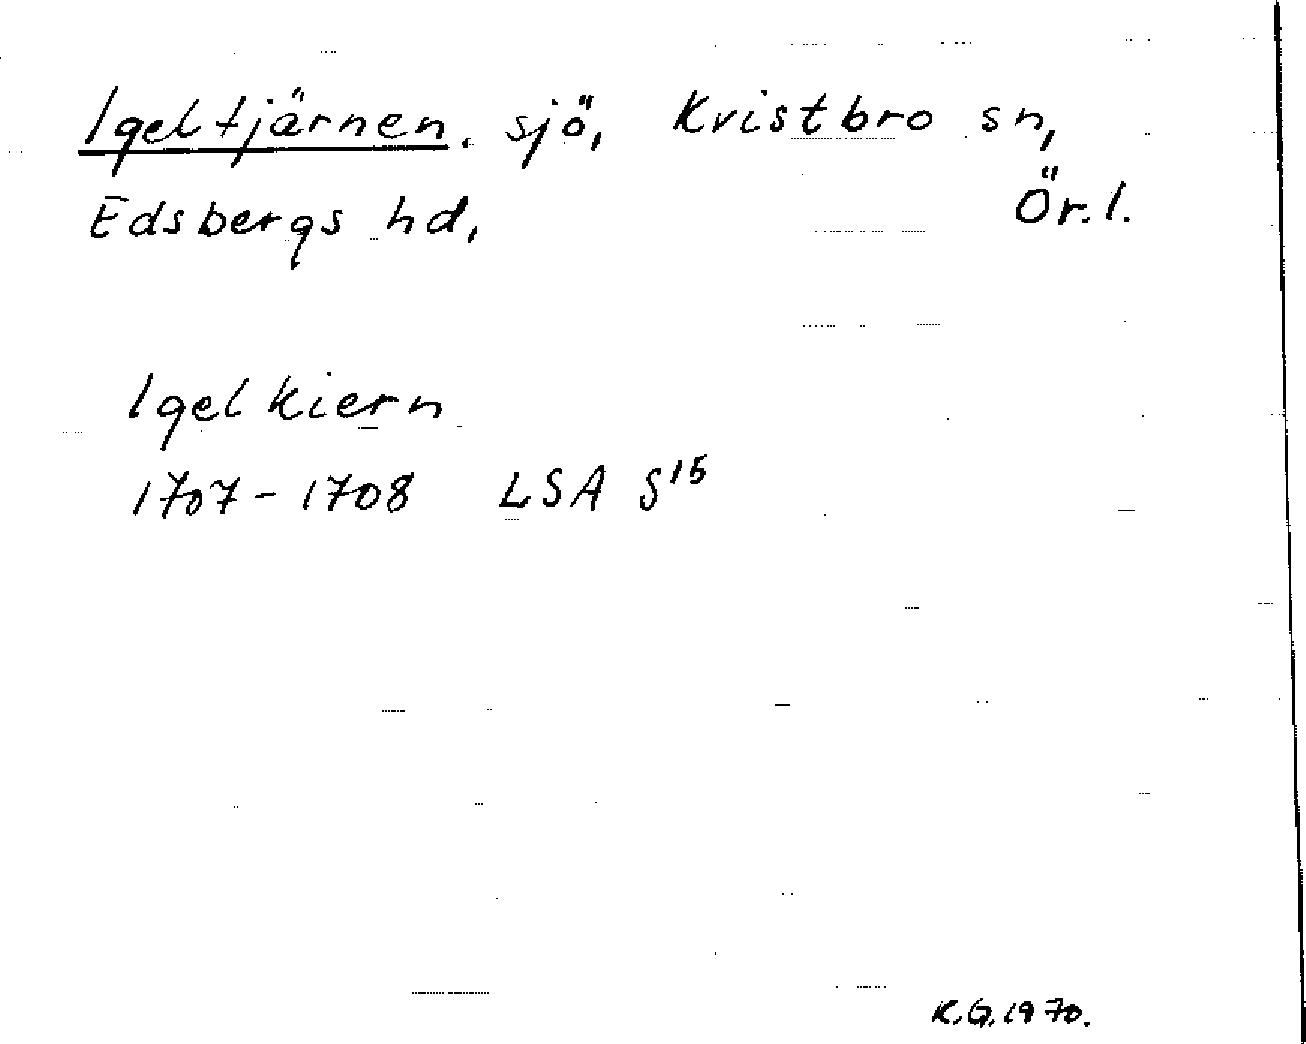 Igeltjärnen, sjö, Kvistbro sn,
Edsbergs hd, Ör.l.
Igelkiern
1707-1708 LSA S15
K.G.1970.